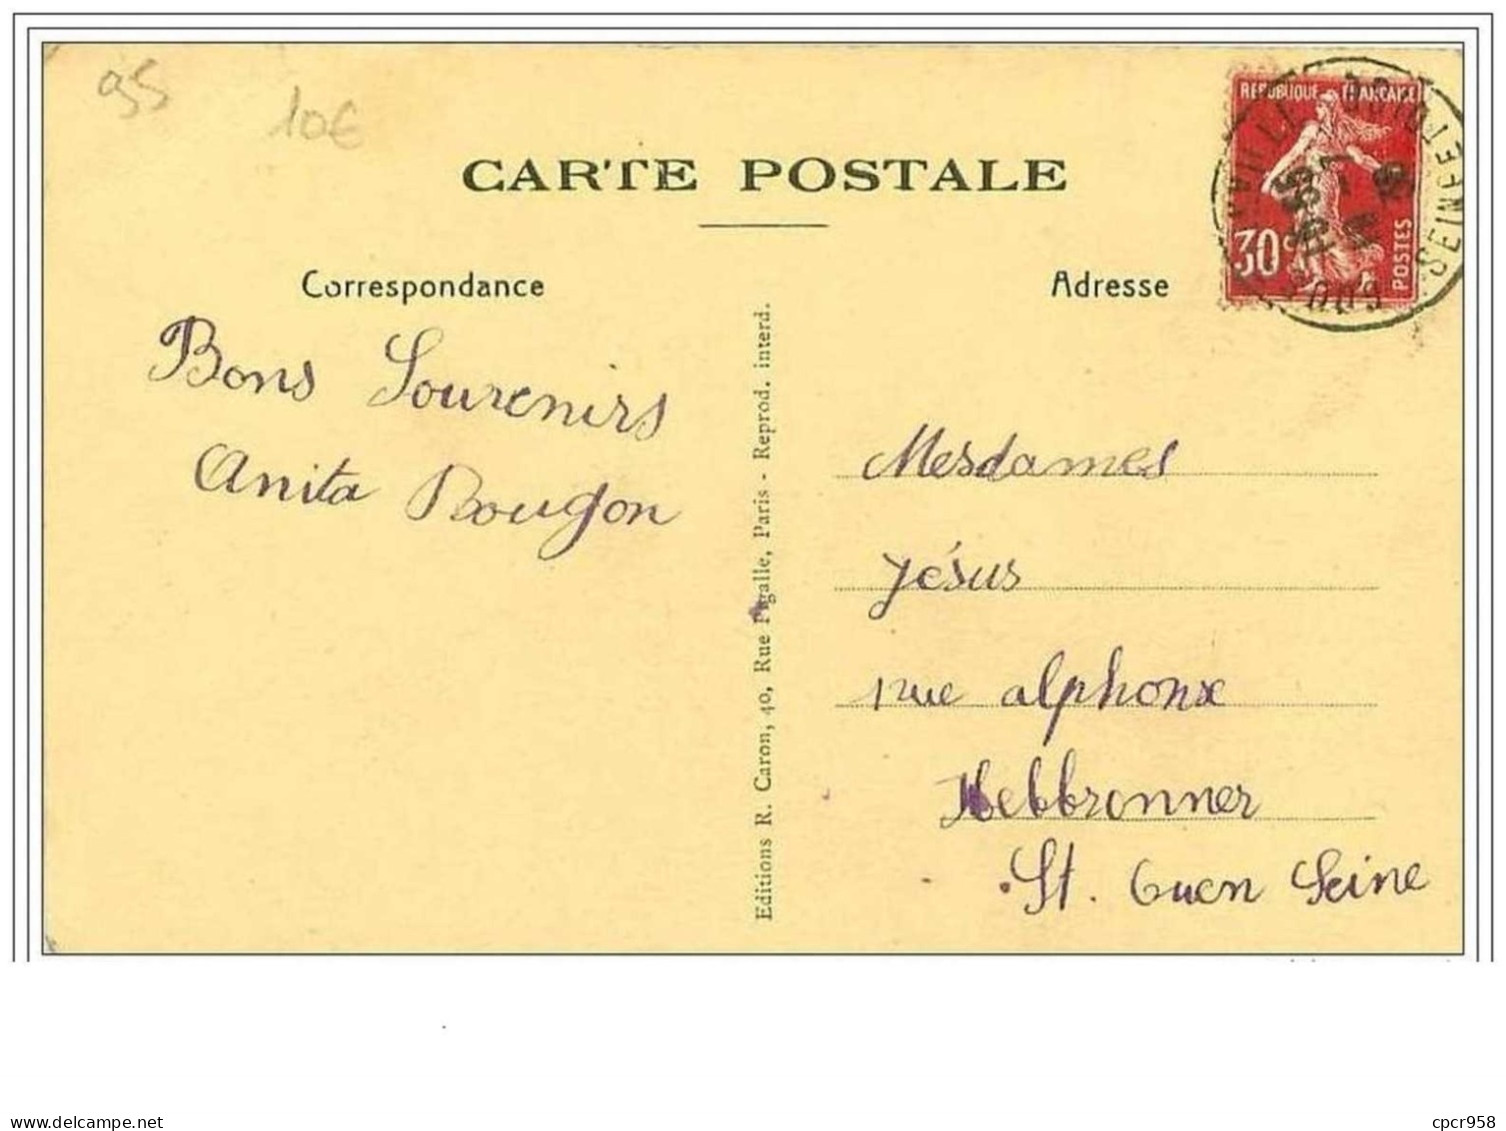 95
10€
CARTE POSTALE
REPUBLIQUE FRANCAISE
30c
POSTES
SEINE ET OISE
Correspondance
Adresse
Bons Souvenirs
Anita Bougon
Editions R. Caron, 40, Rue Pigalle, Paris - Reprod. interd.
Mesdames
Jésus
1 rue alphonse
Hebbronner
St. Ouen Seine
delcampe.net
cpcr958